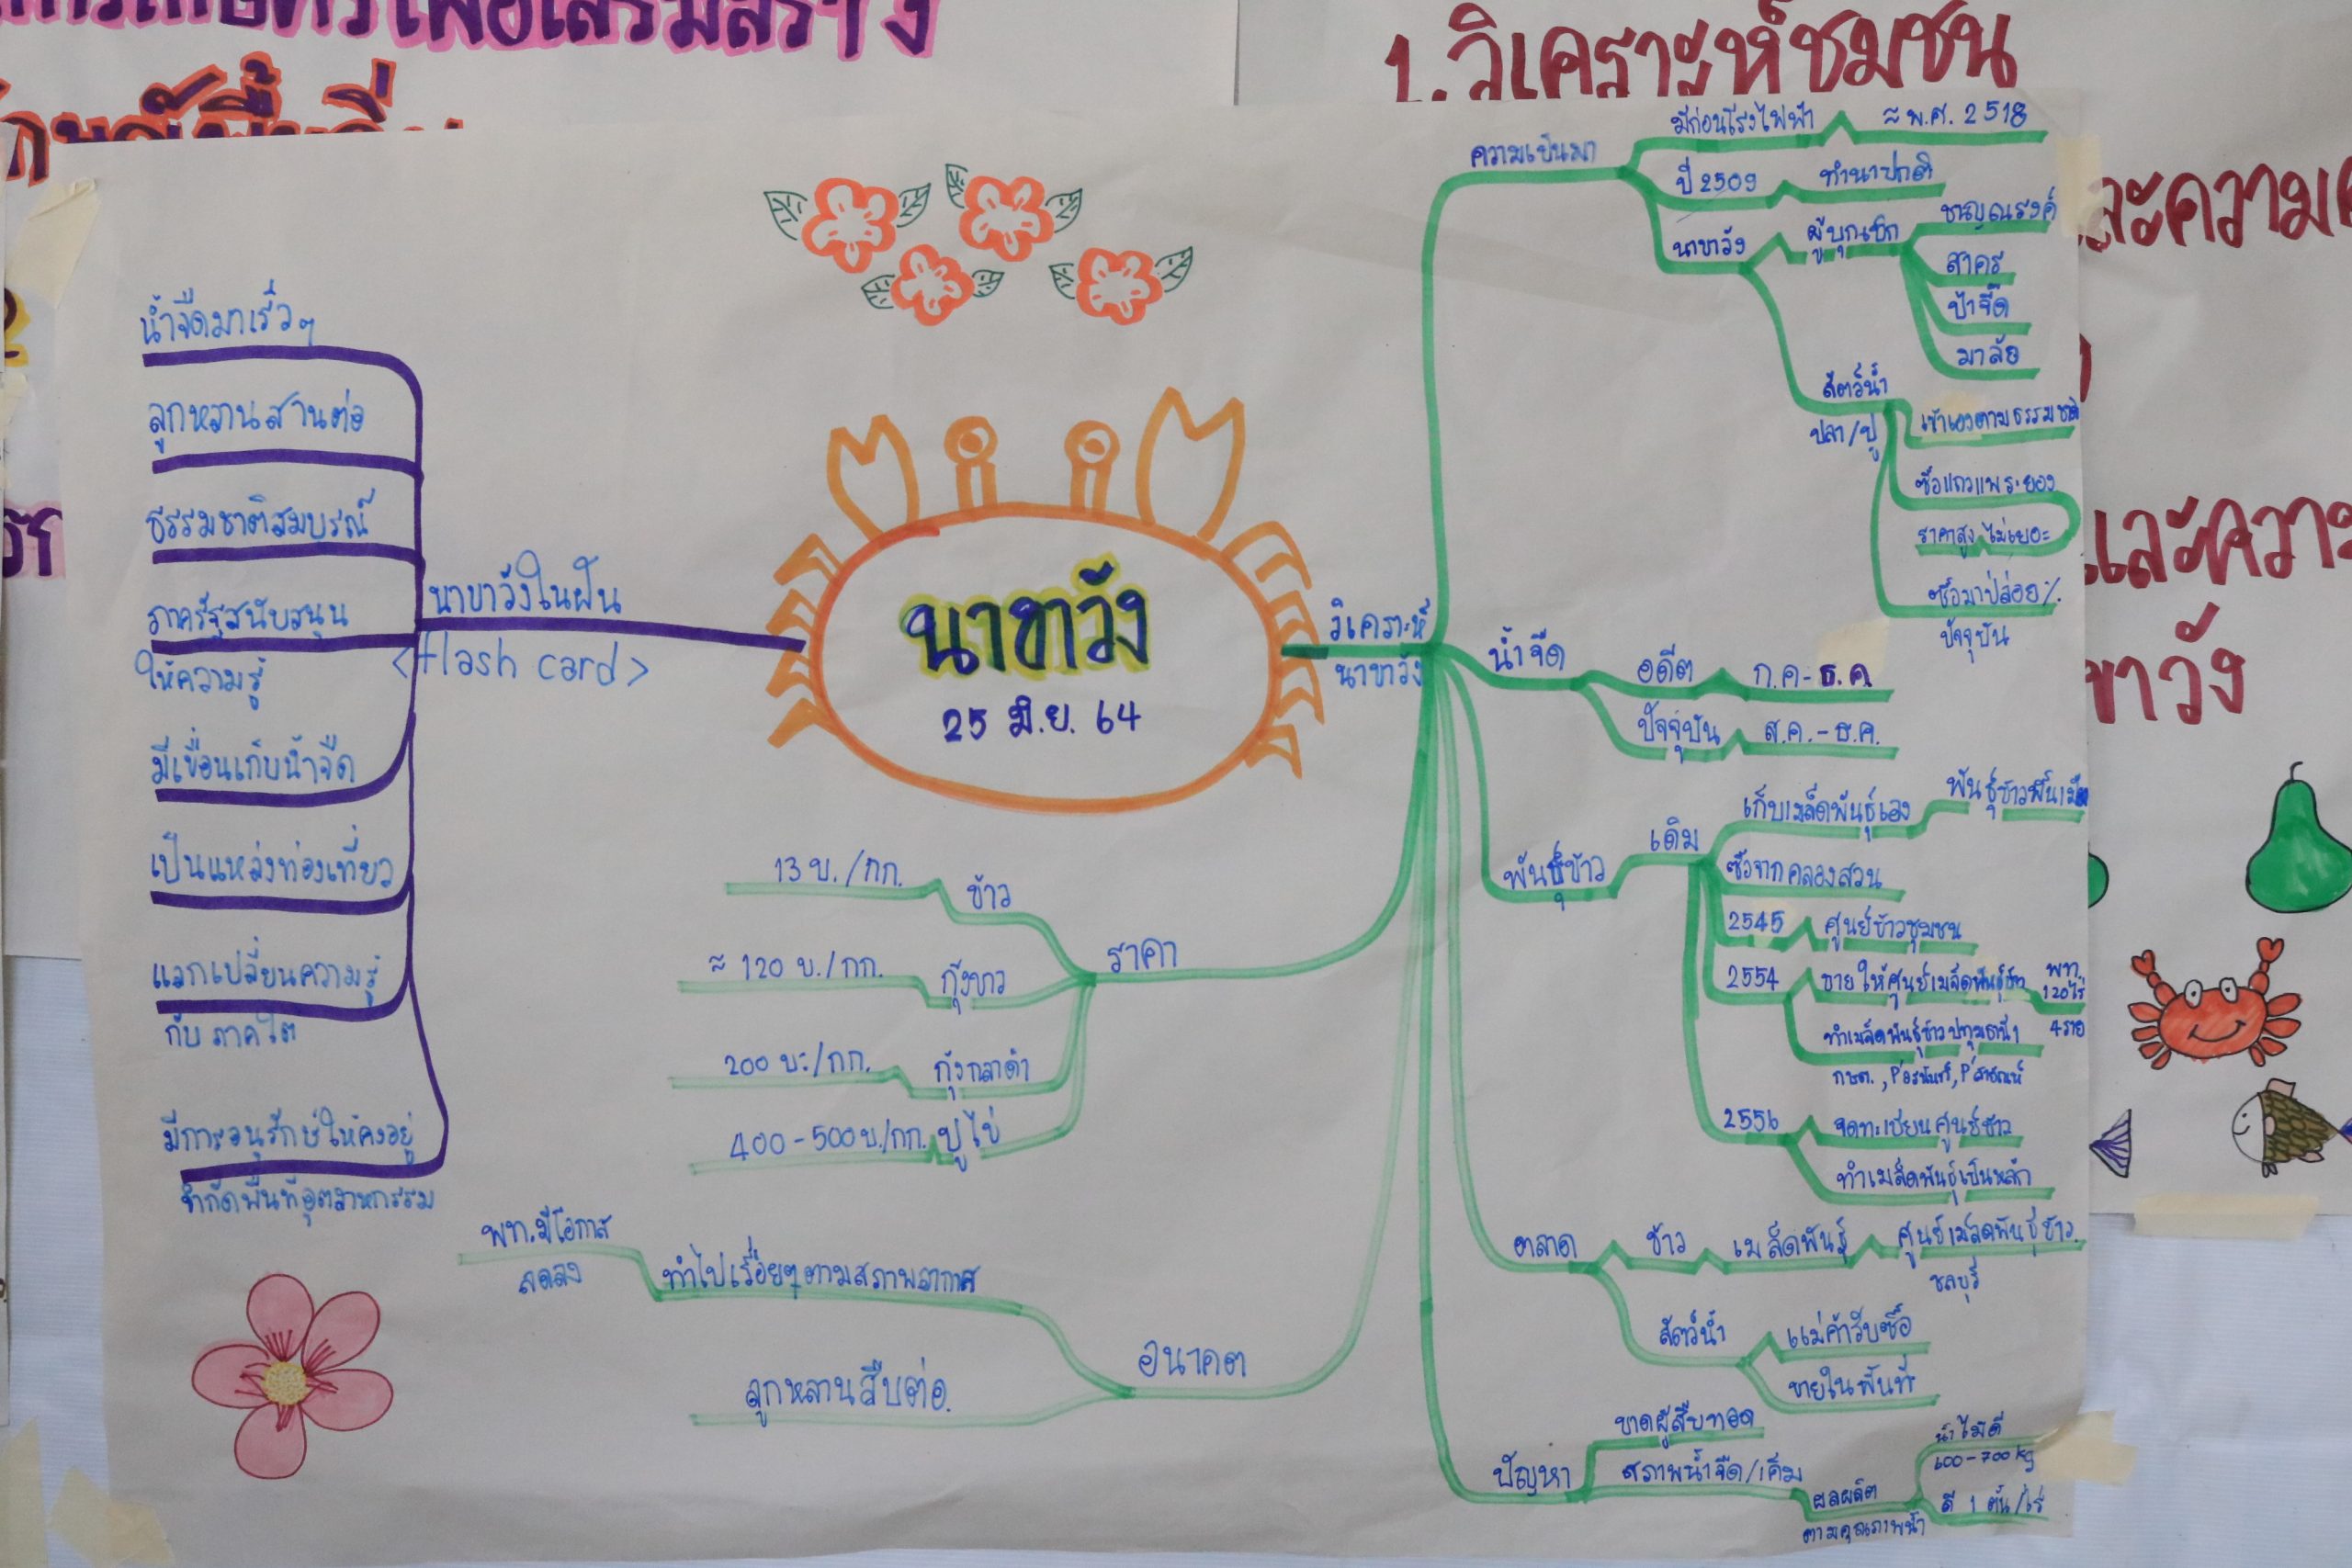 1. วิเคราะห์ชุมชน
ละความ
และควา
ขาวัง
นาขาวัง
25 มิ.ย. 64
นาขาวังในฝัน
<flash card>
น้ำจืดมาเร็วๆ
ลูกหลานสานต่อ
ธรรมชาติสมบูรณ์
ภาครัฐสนับสนุน
ให้ความรู้
มีเขื่อนเก็บน้ำจืด
เป็นแหล่งท่องเที่ยว
แลกเปลี่ยนความรู้
กับ ภาคใต้
มีการอนุรักษ์ให้คงอยู่
จำกัดพื้นที่อุตสาหกรรม
วิเคราะห์
นาขาวัง
ความเป็นมา
มีก่อนโรงไฟฟ้า ≈ พ.ศ. 2518
ปี 2509 ทำนาปกติ
นาขาวัง ผู้บุกเบิก ชาญณรงค์
สาคร
ป้าจี๊ด
มาลัย
สัตว์น้ำ
ปลา/ปู
เข้าเองตามธรรมชาติ
ซื้อแถวแพระยอง
ราคาสูง ไม่เยอะ
ซื้อมาปล่อย%
ปัจจุบัน
น้ำจืด อดีต ก.ค-ธ.ค.
ปัจจุบัน ส.ค.-ธ.ค.
พันธุ์ข้าว เดิม
เก็บเมล็ดพันธุ์เอง พันธุ์ข้าวพื้นเมือง
ซื้อจากคลองสวน
2545 ศูนย์ข้าวชุมชน
2554 ขายให้ศูนย์เมล็ดพันธุ์ข้าว พท. 120ไร่
4 ราย
ทำเมล็ดพันธุ์ข้าวปทุมธานี 1
2556 จดทะเบียนศูนย์ข้าว
ทำเมล็ดพันธุ์เป็นหลัก
ตลาด ข้าว เมล็ดพันธุ์ ศูนย์เมล็ดพันธุ์ข้าว
ชลบุรี
สัตว์น้ำ แม่ค้ารับซื้อ
ขายในพื้นที่
ปัญหา ขาดผู้สืบทอด
สภาพน้ำจืด/เค็ม
ผลผลิต
ตามคุณภาพน้ำ
น้ำไม่ดี
600-700 kg
ดี 1 ตัน/ไร่
ราคา
ข้าว 13 บ./กก.
กุ้งขาว ≈ 120 บ./กก.
กุ้งกุลาดำ 200 บ./กก.
ปูไข่ 400-500 บ./กก.
อนาคต
ทำไปเรื่อยๆตามสภาพอากาศ
พท.มีโอกาส
ลดลง
ลูกหลานสืบต่อ.